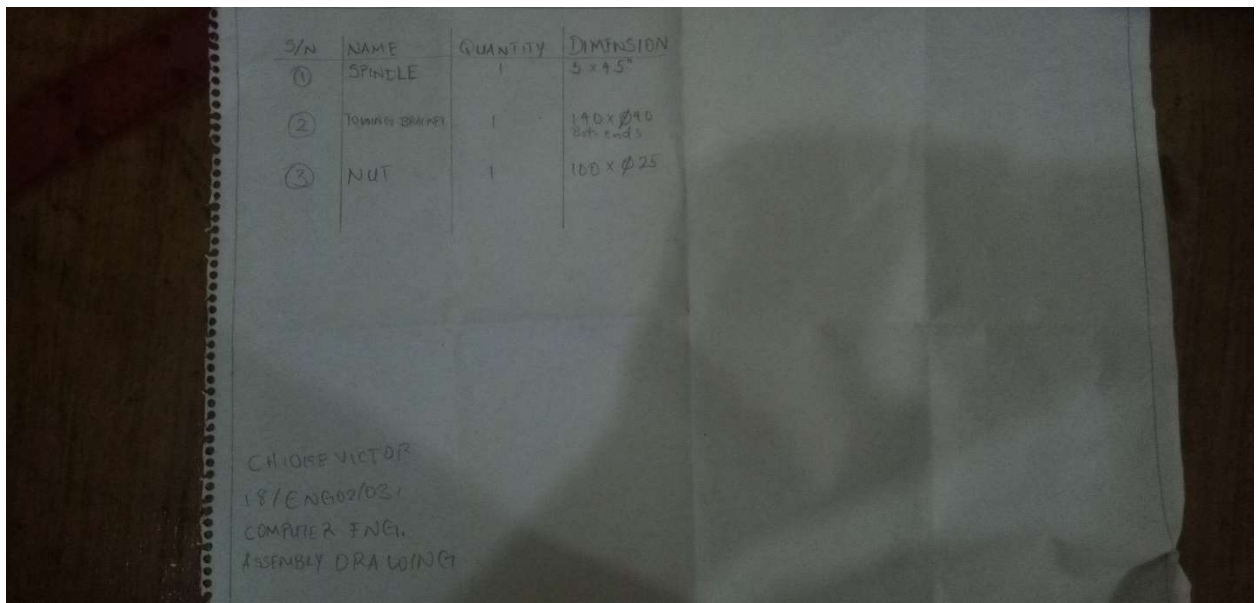 S/N NAME QUANTITY DIMENSION
1 SPINDLE 1 5 x 45°
2 TOWING BRACKET 1 190 x Ø90
Both ends
3 NUT 1 100 x Ø25
VICTOR
18/ENG02/031
COMPUTER ENG.
ASSEMBLY DRAWING